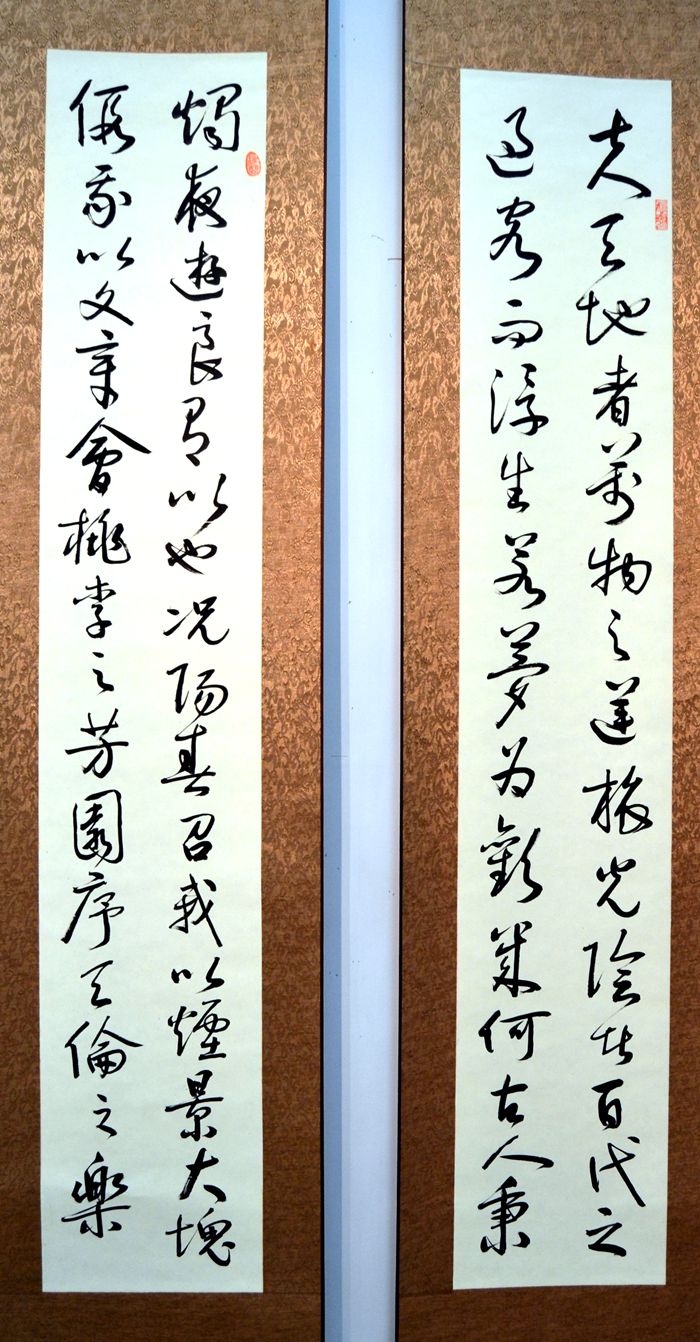 夫天地者萬物之逆旅光陰者百代之
過客而浮生若夢为歡幾何古人秉
燭夜遊良有以也况陽春召我以煙景大塊
假我以文章會桃李之芳園序天倫之樂